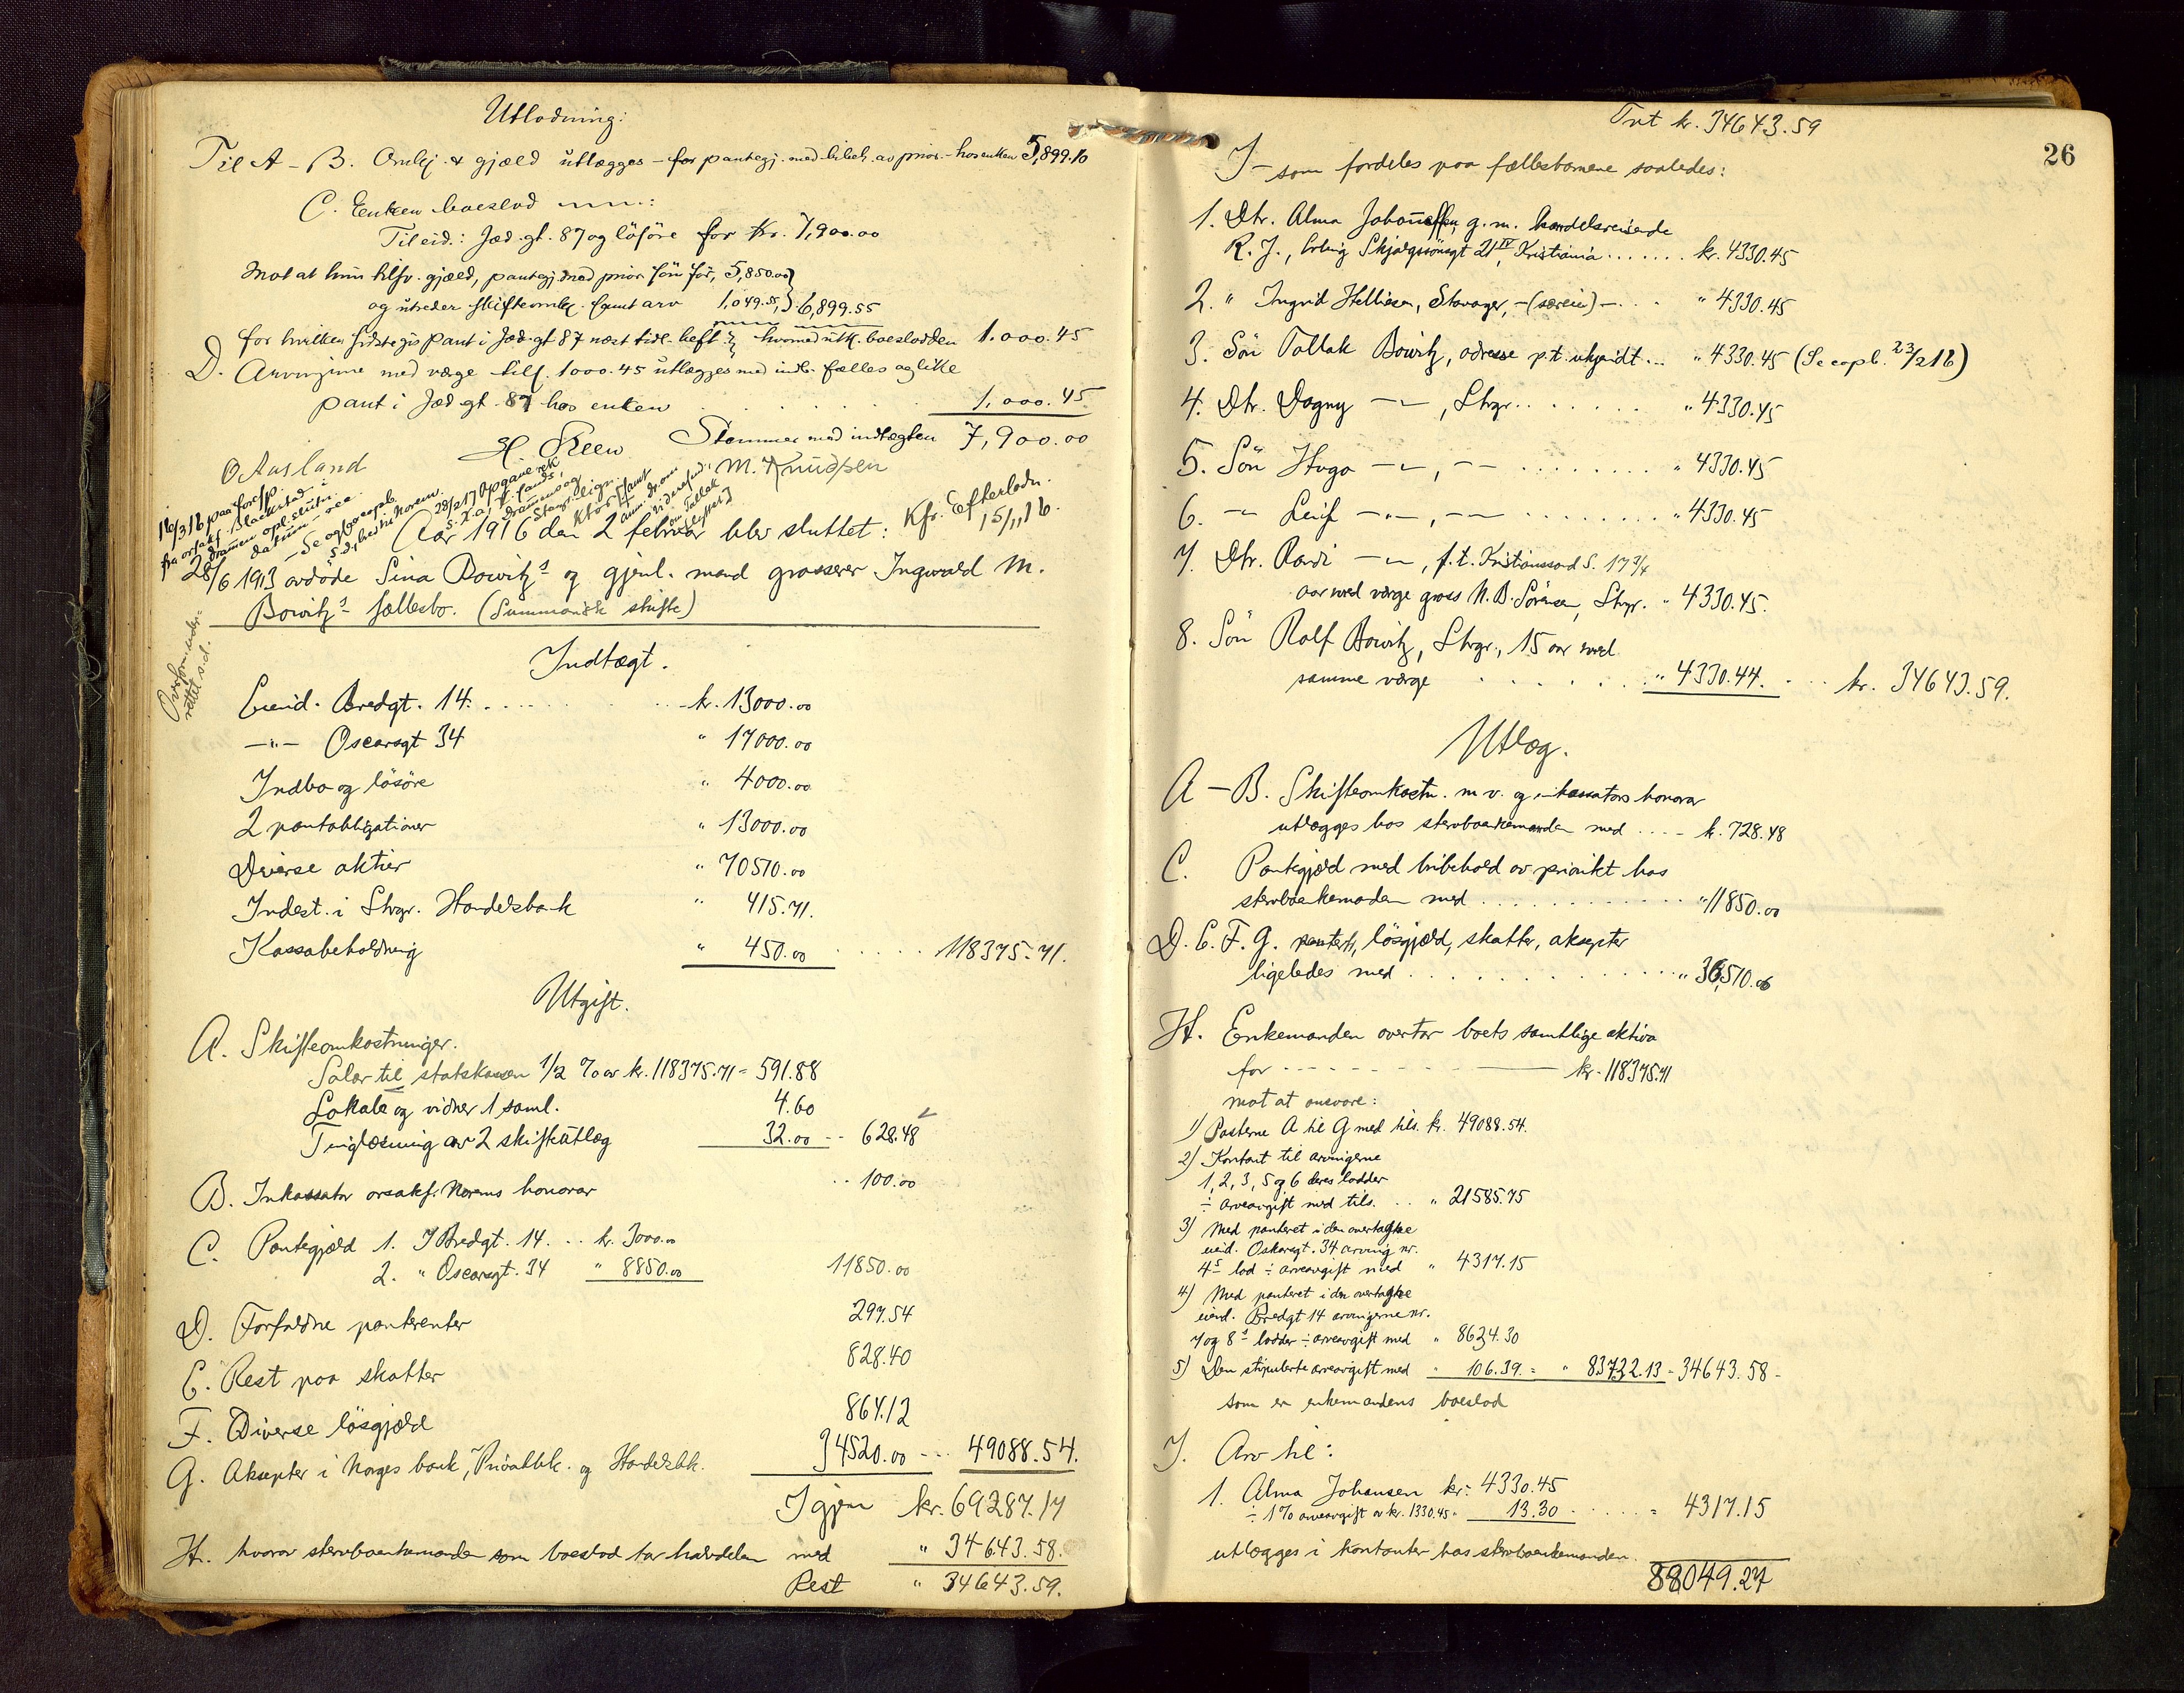 Utlodning:
Til A - B. Omk. & gjæld utlægges - for pantegj. med bibeh. av prior. - hos enken 5,899.10
C. Enken boeslod
Til eid.: Jæd.gt. 87 og løsøre for kr. 7,900.00
Mot at hun tilsv. gjæld, pantegj. med prior. som før, 5,850.00
og utreder skifteomk. samt arv 1,049.55, 6,899.55
for hvilken sidste gis pant i Jæd.gt 87 næst tidl. heft. hvormed utk. boeslodden 1.000.45
D. Arvingine med værge tils. 1000.45 utlægges med indb. fælles og like
pant i Jæd.gt. 87 hos enken . . . . . 1,000.45
Stemmer med indtægten 7,900.00
O Aasland
H. Steen
M. Knudsen
Kfr. Efterlodn. 15/11 16.
Aar 1916 den 2 februar blev sluttet:
28/6 1913 avdøde Sina Bowitz's og gjenl. mand grosserer Ingwald M.
Bowitz's fællesbo. (Summarisk skifte)
Indtægt.
Eiend. Bredgt. 14. . . . . . kr. 13000.00
-"- Oscarsgt 34 " 17000.00
Indbo og løsøre " 4000.00
2 pantobligationer " 13000.00
Diverse aktier " 70510.00
Indest. i Stvgr. Handelsbank " 415.71.
Kassabeholdning " 450.00 . . . . . 118375.71.
Utgift.
A. Skifteomkostninger.
Salær til statskassen 1/2 % av kr. 118375.71 = 591.88
Lokale og vidner 1 saml. 4.60
Tinglæsning av 2 skifteutlæg 32.00 -- 628.48
B. Inkassator orsakf. Norems honorar . . 100.00
C. Pantegjæld 1. I Bredgt. 14 . . kr. 3000.00
2. " Oscarsgt. 34 " 8850.00 11850.00
D. Forfaldne panterenter 297.54
E. Rest paa skatter 828.40
F. Diverse løsgjæld 864.12
G. Aksepter i Norges bank, Privatbk. og Handelsbk. 34520.00 --- 49088.54.
Igjen kr. 69287.17
H. hvorav stervboenkemanden som boeslod tar halvdelen med " 34643.58.
Rest " 34643.59.
Trt kr. 34643.59
26
I - som fordeles paa fællesbarnene saaledes:
1. Dtr. Alma Johannessen, g.m. handelsreisende
R. J., Erling Skjalgssønsgt 21 IV, Kristiania . . . . . . kr. 4330.45
2. " Ingrid Helliesen, Stavanger, -(særeie)- . . " 4330.45
3. Søn Tallak Bowitz, adresse p.t. ukjendt... " 4330.45 (Se eopl. 23/2 16)
4. Dtr. Dagny -"-, Stvgr. . . . . . . " 4330.45
5. Søn Hugo -"-, -"- . . . . . . . " 4330.45
6. -"- Leif -"-, -"- . . . . . . . " 4330.45
7. Dtr. Randi -"-, p.t. Kristianssand S. 17 3/4
aar med værge gross N. B. Sørensen, Stvgr. " 4330.45.
8. Søn Rolf Bowitz, Stvgr., 15 aar med
samme værge . . . . . . " 4330.44. . . . kr. 34643.59.
Utlæg.
A - B. Skifteomkostn. m.v. og inkassators honorar
utlægges hos stervboenkemanden med . . . . kr. 728.48
C. Pantegjæld med bibehold av prioritet hos
stervboenkemanden med . . . . . . . . . . " 11850.00
D. E. F. G. panterter, løsgjæld, skatter, aksepter
ligeledes med . . . . . . . . . . . . . " 36,510.06
H. Enkemanden overtar boets samtlige aktiva
for - - - - - - kr. 118375.71
mot at ansvare:
1) Posterne A til G med tils. kr. 49088.54.
2) Kontant til arvingerne
1, 2, 3, 5 og 6 deres lodder
÷ arveavgift med tils. . . " 21585.75
3) Med panteret i den overtagne
eiend. Oskarsgt. 34 arving nr.
4s lod ÷ arveavgift med " 4317.15
4) Med panteret i den overtagne
eiend. Bredgt 14 arvingerne nr.
7 og 8s lodder ÷ arveavgift med " 8634.30
5) Den stipulerte arveavgift med " 106.39. = " 83732.13 - 34643.58 -
som er enkemandens boeslod
J. Arv til:
1. Alma Johansen kr. 4330.45
÷ 1% arveavgift av kr. 1330.45 - 13.30 . . . . . = 4317.15
utlægges i kontanter hos stervboenkemanden.
88049.27